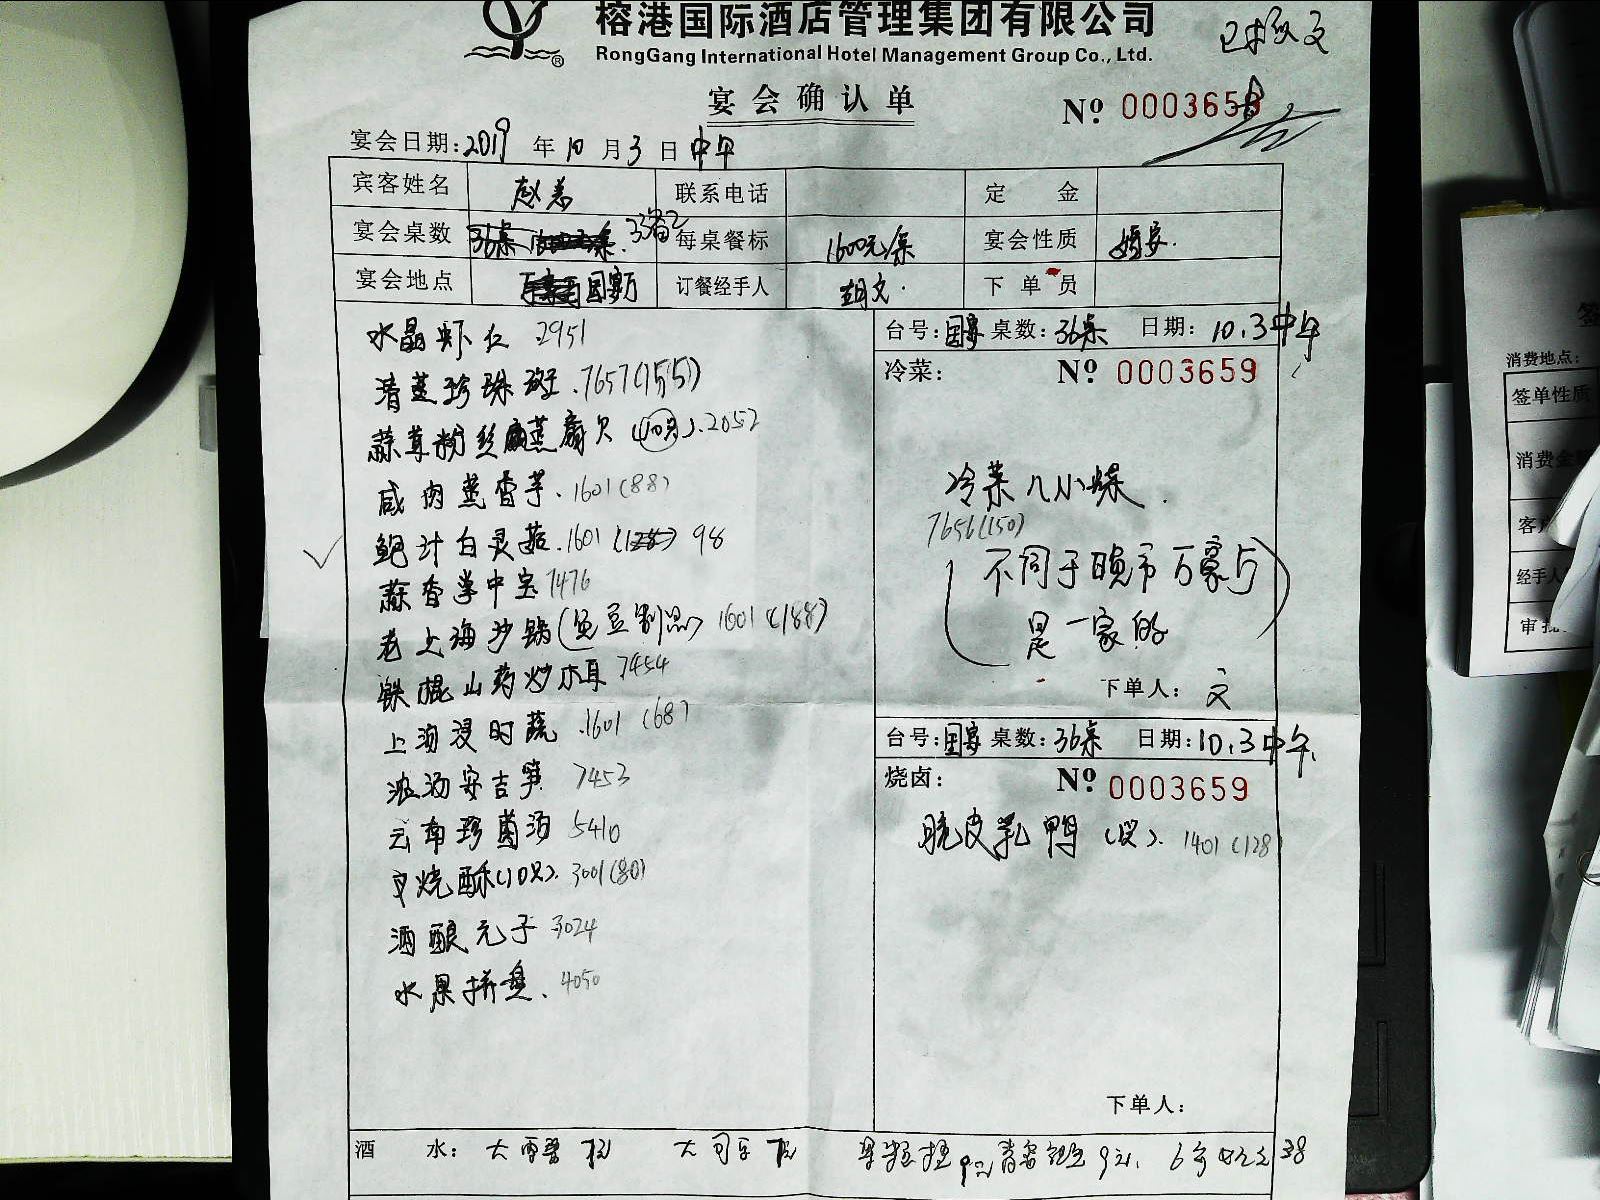 榕港国际酒店管理集团有限公司
RongGang International Hotel Management Group Co., Ltd.
宴会确认单
Nº 0003659
宴会日期: 2019 年 10 月 3 日 中午
宾客姓名 联系电话 定 金
宴会桌数 36桌 33备2 每桌餐标 1600元/桌 宴会性质 婚宴.
宴会地点 国宴厅 订餐经手人 胡文. 下 单 员
水晶虾仁 2951
清蒸珍珠斑.7657(155)
蒜茸粉丝蒸扇贝 2052
咸肉蒸香芋.1601(88)
鲍汁白灵菇.1601 (128) 98
蒜香掌中宝 7476
老上海沙锅(免豆制品) 1601 (188)
铁棍山药炒木耳 7454
上汤浸时蔬.1601 (68)
浓汤安吉笋 7453
云南珍菌汤 5410
叉烧酥(10只).3001(80)
酒酿元子 3024
水果拼盘.4050
台号: 国宴 桌数: 36桌 日期: 10.3中午
冷菜: Nº 0003659
冷菜八小碟.
7656(150)
(不同于晚市万豪厅
是一家的)
下单人: 文
台号: 国宴 桌数: 36桌 日期: 10.3中午
烧卤: Nº 0003659
脆皮乳鸭 1401 (128
下单人:
酒 水: 大雪碧 大可乐 38
消费地点:
签单性质
消费金
客户
经手人
审批